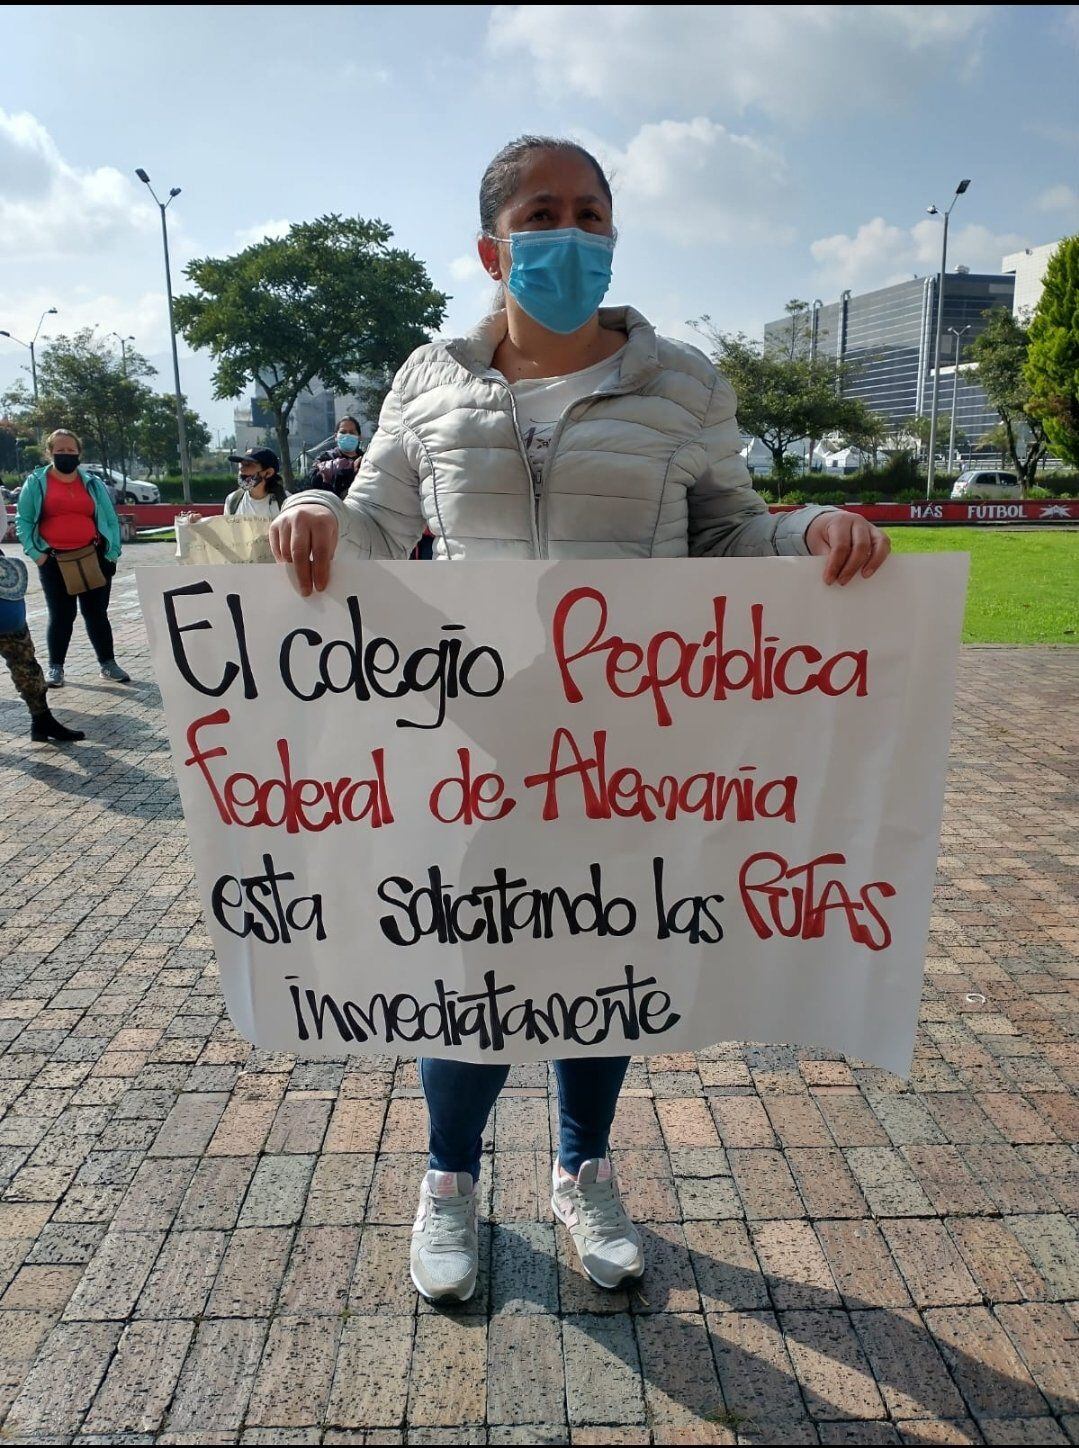 El colegio República
Federal de Alemania
esta solicitando las RUTAS
inmediatamente
MÁS FÚTBOL